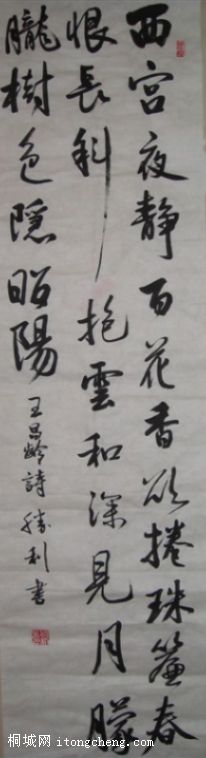 西宫夜靜百花香欲捲珠簾春
恨長斜抱雲和深見月朦
朧樹色隱昭陽
王昌齡詩 勝利書
桐城网 itongcheng.com